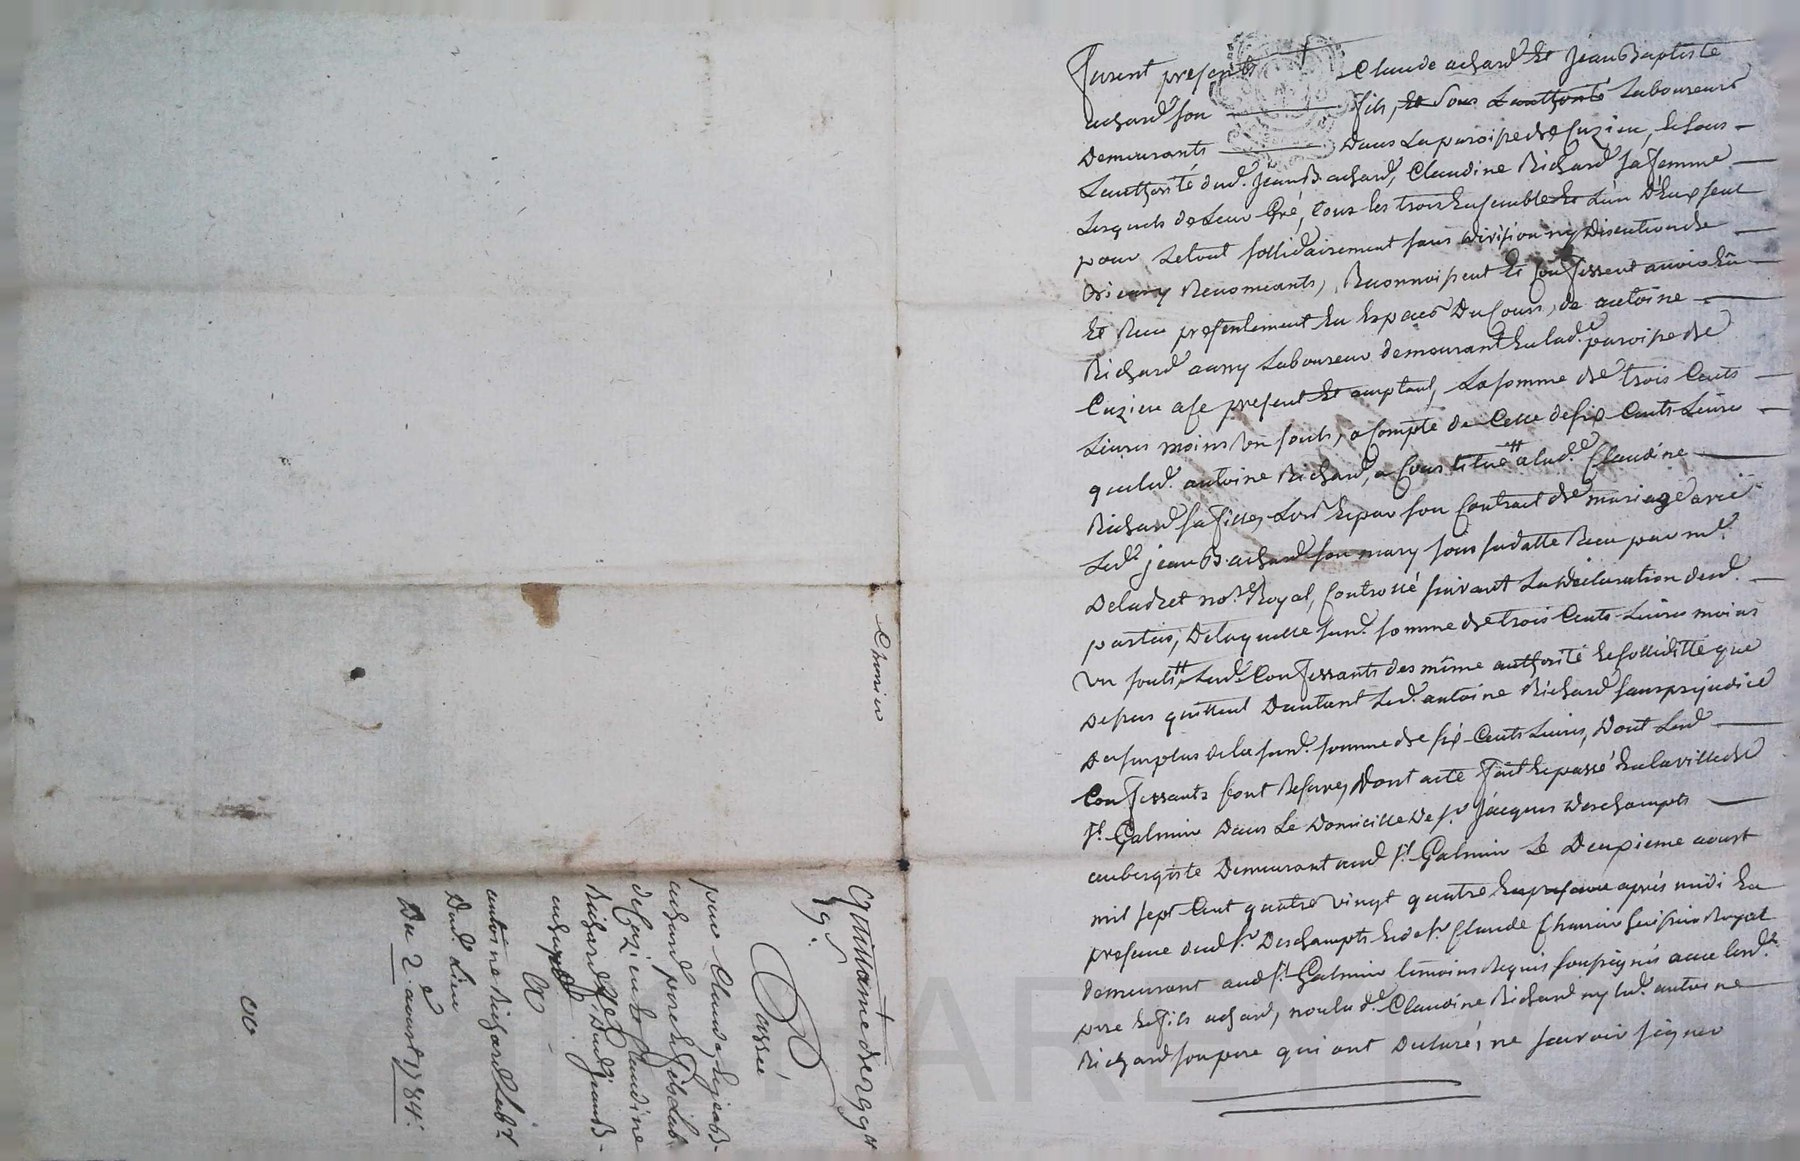 Furent presents Claude achard Et Jean Baptiste
achard son fils, Et sous Lauthorité Laboureurs
Demeurants Dans La paroisse de Cuzieu, Et sous
Lauthorité dud. Jean B achard, Claudine Richard sa femme
Lesquels de Leur Gré, tous les trois Ensemble Et L'un D'Eux seul
pour Le tout sollidairement sans division ny Discution de
Renonceants, Reconnoissent Et Confessent avoir Eû
Et Receu presentement En Especes Du Cours, de antoine
Richard aussy Laboureur demeurant En lad. paroisse de
Cuzieu a se present Et acceptant, La somme de trois Cents
Livres moins un souls, a Compte de Celle de six Cents Livres
que led. antoine Richard, a Constitué a lad. Claudine
Richard sa fille, Lors Et par son Contract de mariage avec
Led. jean B achard son mary sous sa datte Receu par me.
Deladret nore. Royal, Controllé suivant La declaration desd.
parties, De laquelle susd. somme de trois Cents Livres moins
Un souls, Lesd. Confessants des même authorité Et solliditte que
Dessus quittent Dautant Led. antoine Richard sans prejudice
Du surplus de la susd. somme de six Cents Livres, Dont Lesd.
Confessants font Reserve, Dont acte Fait Et passé En la ville de
St. Galmier Dans Le Domicille De sr. Jacques Deschampts
aubergiste Demeurant aud. St. Galmier Le Deuxieme aoust
mil sept Cent quatre vingt quatre apres midi En
presence dud. sr. Deschampts Et de sr. Claude Chomier huissier Royal
demeurant aud. St. Galmier temoins Requis soussignés avec lesd.
pere Et fils achard, non lad. Claudine Richard ny led. antoine
Richard son pere qui ont Declaré ne scavoir signer
Chomier
Quittance de 299
19 s.
Passée
par Claude, Et jean B
achard pere Et fils Lab.
de Cuzieu Et Claudine
Richard fe. dud. Jean B
achard
A
antoine Richard Labr.
Dud. Lieu
Du 2e. aoust 1784.